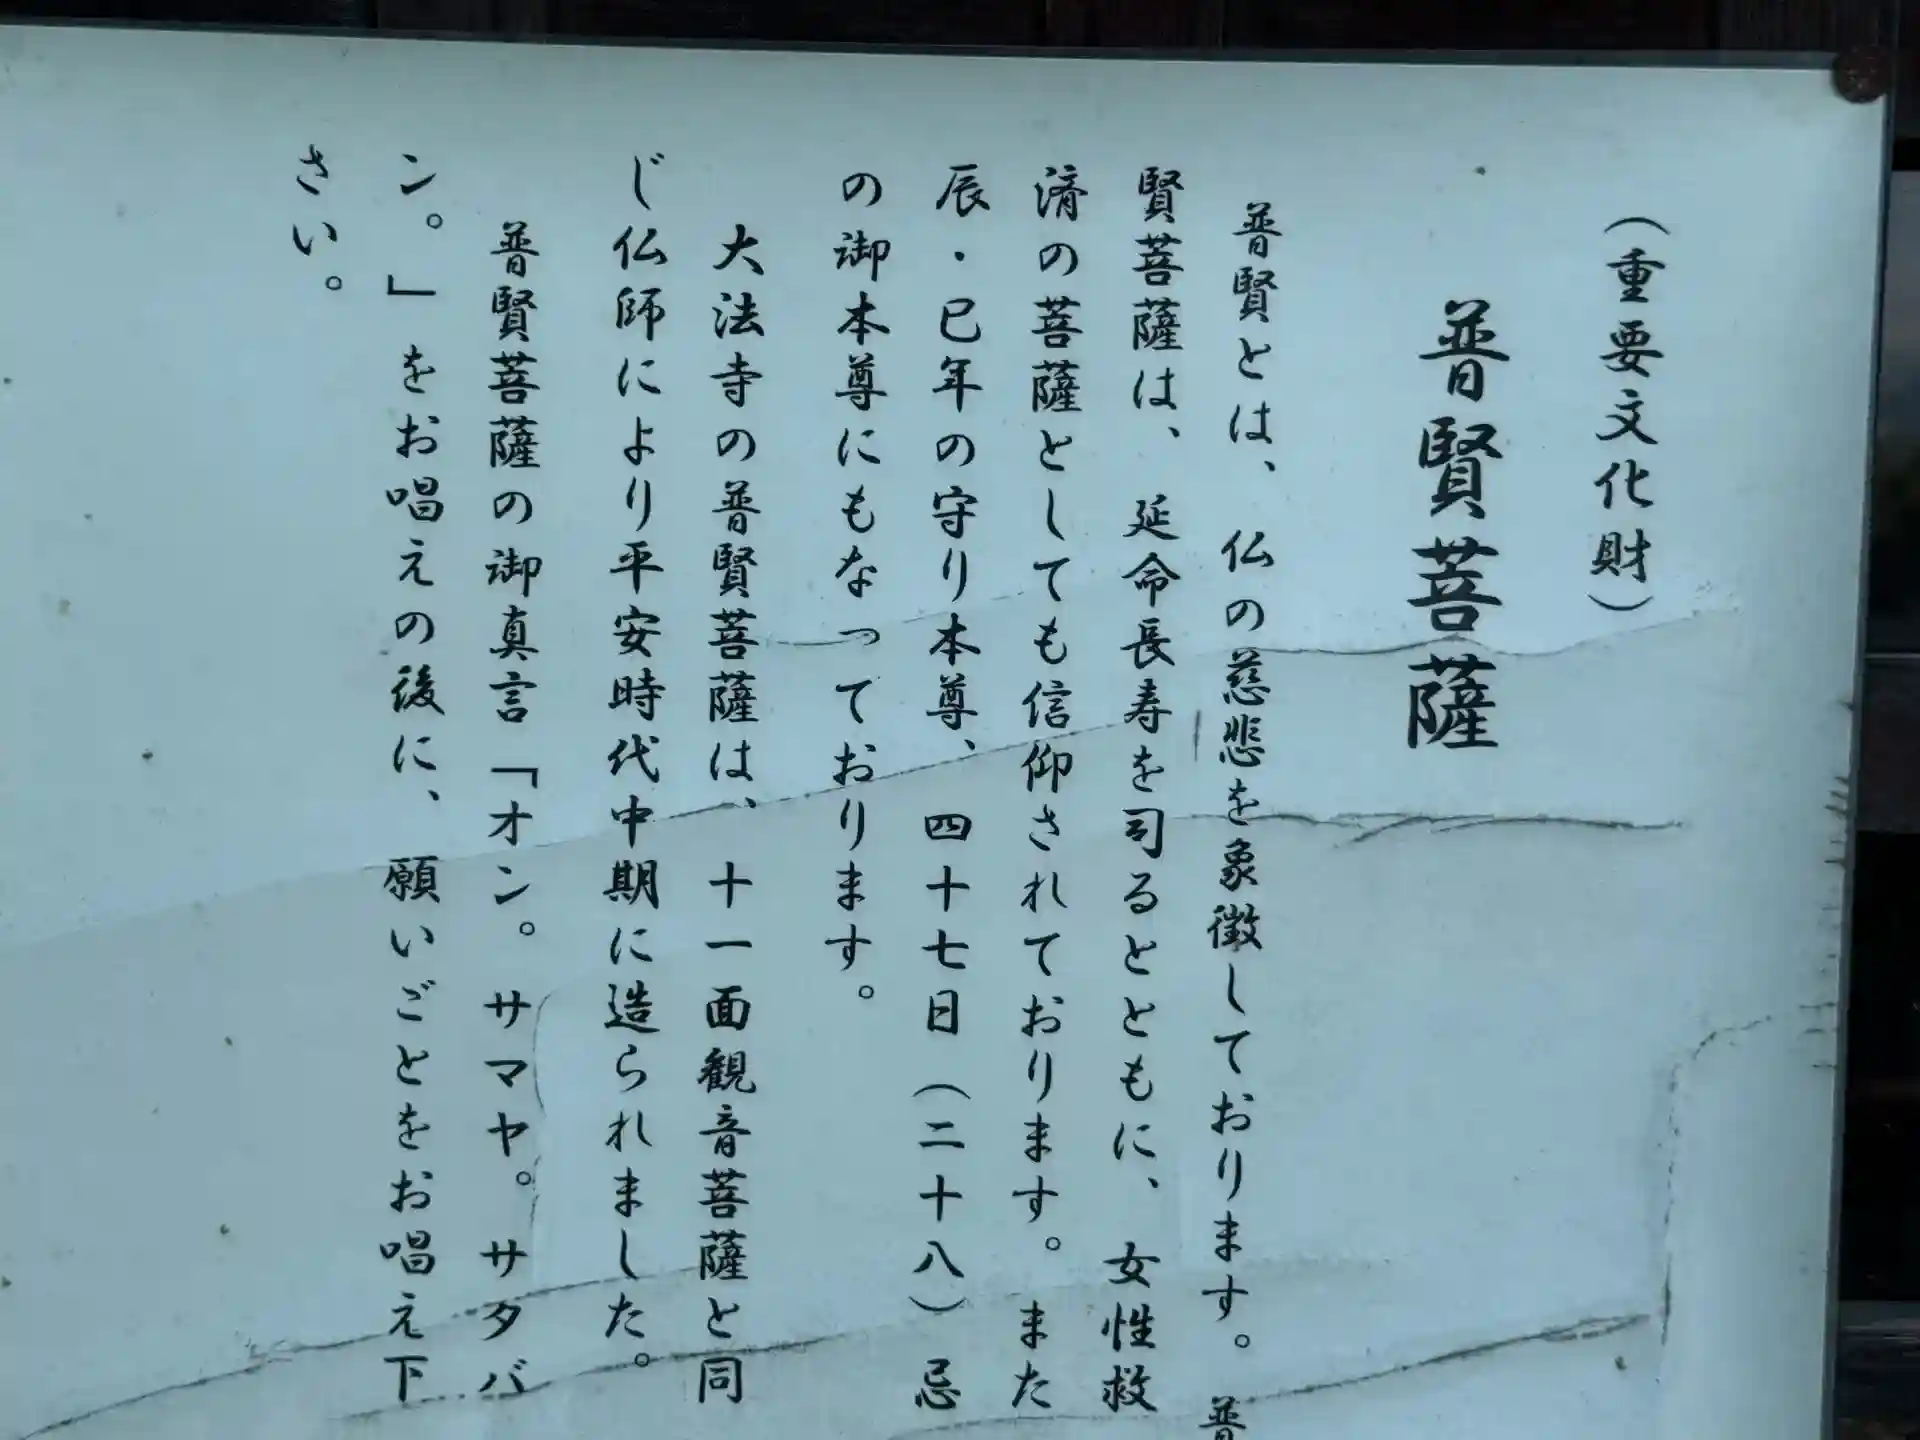 (重要文化財)
普賢菩薩
普賢とは、仏の慈悲を象徴しております。普
賢菩薩は、延命長寿を司るとともに、女性救
済の菩薩としても信仰されております。また
辰・巳年の守り本尊、四十七日(二十八)忌
の御本尊にもなっております。
大法寺の普賢菩薩は、十一面観音菩薩と同
じ仏師により平安時代中期に造られました。
普賢菩薩の御真言「オン。サマヤ。サタバ
ン。」をお唱えの後に、願いごとをお唱え下
さい。